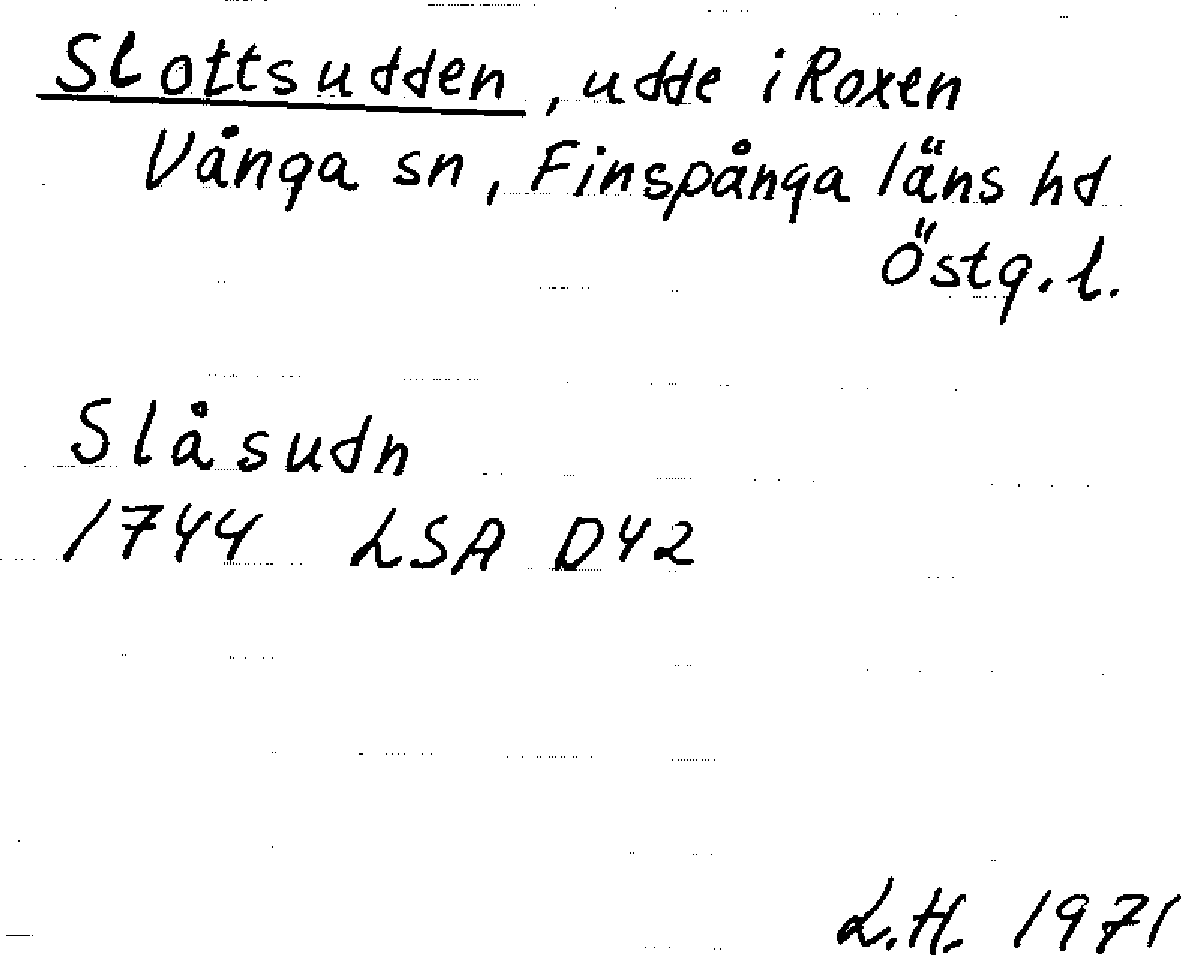 Slottsudden, udde i Roxen
Vånga sn, Finspånga läns hd
Östg. l.
Slåsudn
1744 LSA D42
L.H. 1971